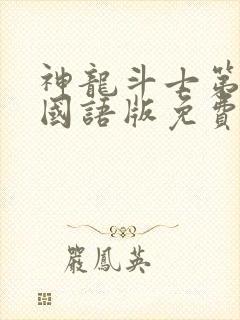 神龍斗士第
國語版免費
嚴鳳英